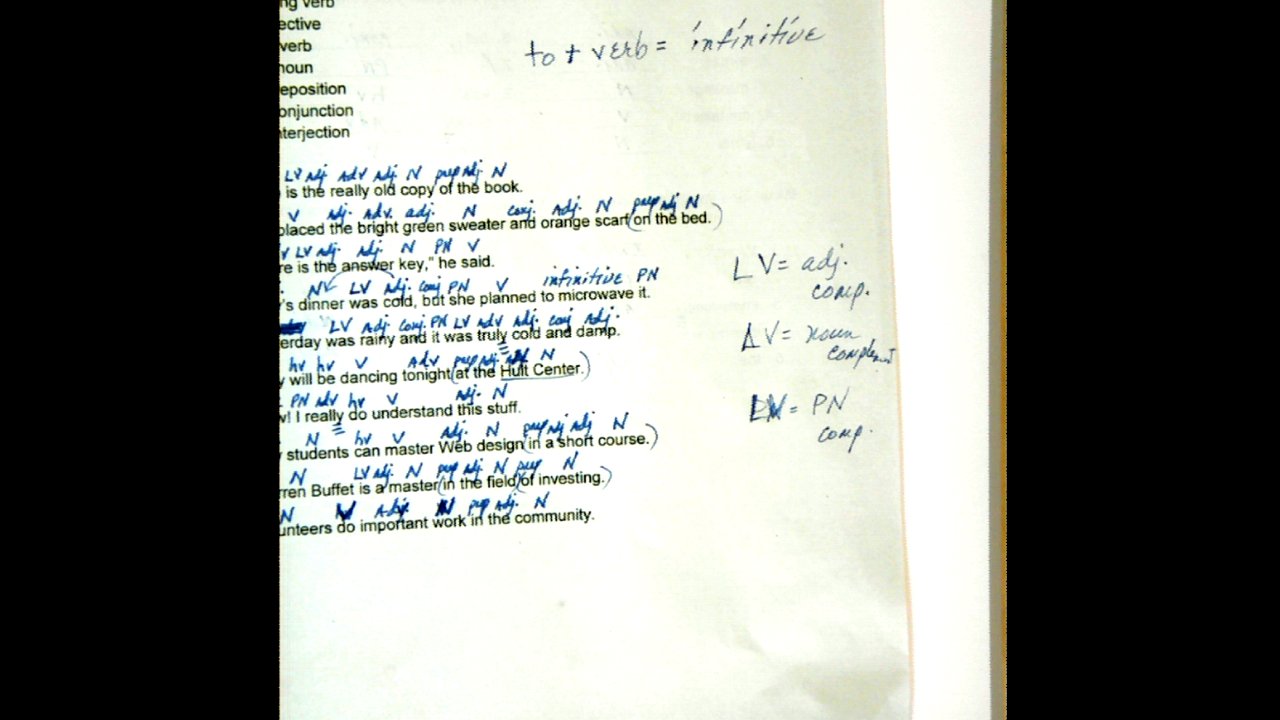 ng verb
ective
verb
noun
eposition
onjunction
nterjection
to + verb = infinitive
LV adj. adv adj. N prep adj. N
is the really old copy of the book.
V adj. adv. adj. N conj. Adj. N prep adj N
placed the bright green sweater and orange scarf (on the bed.)
V LV adj. adj. N PN V
re is the answer key," he said.
N LV adj. conj PN V infinitive PN
's dinner was cold, but she planned to microwave it.
LV Adj. conj. PN LV adv Adj. conj Adj.
erday was rainy and it was truly cold and damp.
hv hv V Adv prep adj. N
will be dancing tonight (at the Hult Center.)
PN adv hv V adj. N
w! I really do understand this stuff.
N hv V Adj. N prep adj adj N
students can master Web design (in a short course.)
N LV adj. N prep adj. N prep N
rren Buffet is a master (in the field) (of investing.)
N V Adj. N prep adj. N
unteers do important work in the community.
LV = adj.
comp.
LV = noun
complement
LV = PN
comp.